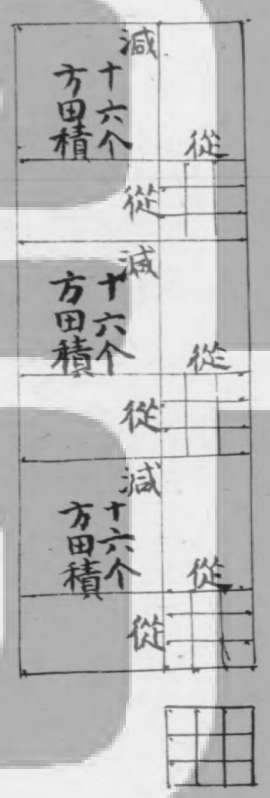 減
十六个
方田積
從
從
減
十六个
方田積
從
從
減
十六个
方田積
從
從